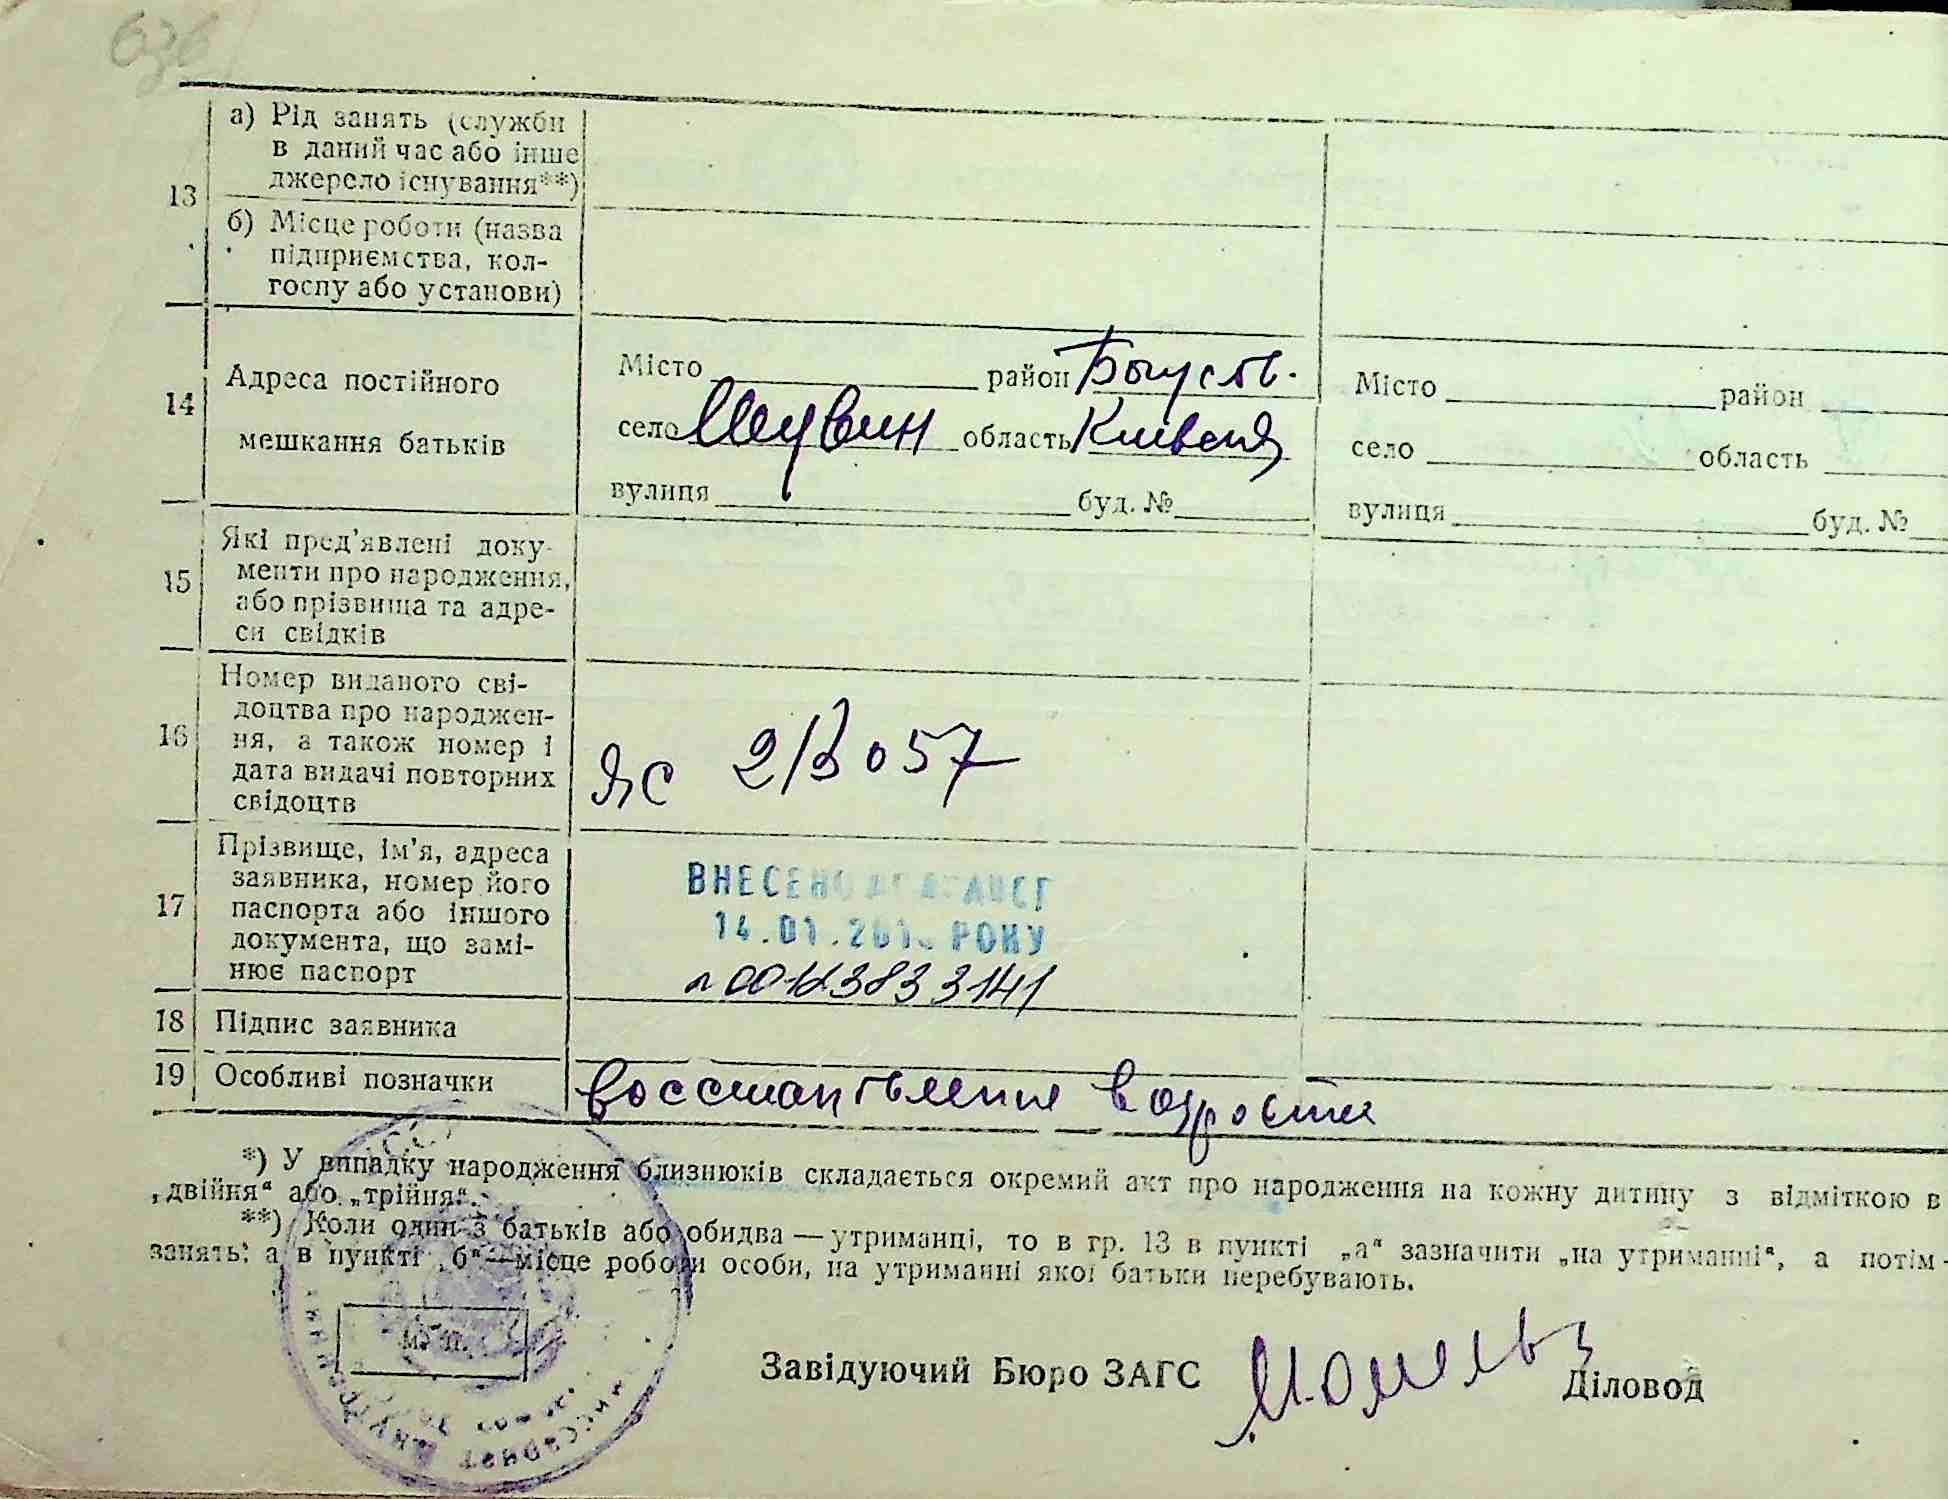 636
13
а) Рід занять (служби
в даний час або інше
джерело існування**)
б) Місце роботи (назва
підприємства, кол-
госпу або установи)
14
Адреса постійного
мешкання батьків
Місто район Богуслв.
село область Київськ
вулиця буд. №
Місто район
село область
вулиця буд. №
15
Які пред'явлені доку-
менти про народження,
або прізвища та адре-
си свідків
16
Номер виданого сві-
доцтва про народжен-
ня, а також номер і
дата видачі повторних
свідоцтв
ЯС 213057
17
Прізвище, ім'я, адреса
заявника, номер його
паспорта або іншого
документа, що замі-
нює паспорт
ВНЕСЕНО ДО ДРАЦСГ
14.01. РОКУ
18
Підпис заявника
19
Особливі позначки
восстановление возраста
*) У випадку народження близнюків складається окремий акт про народження на кожну дитину з відміткою в
„двійня“ або „трійня“.
**) Коли один з батьків або обидва — утриманці, то в гр. 13 в пункті „а“ зазначити „на утриманні“, а потім -
занять: а в пункті „б“ — місце роботи особи, на утриманні якої батьки перебувають.
М. П.
Завідуючий Бюро ЗАГС
Діловод